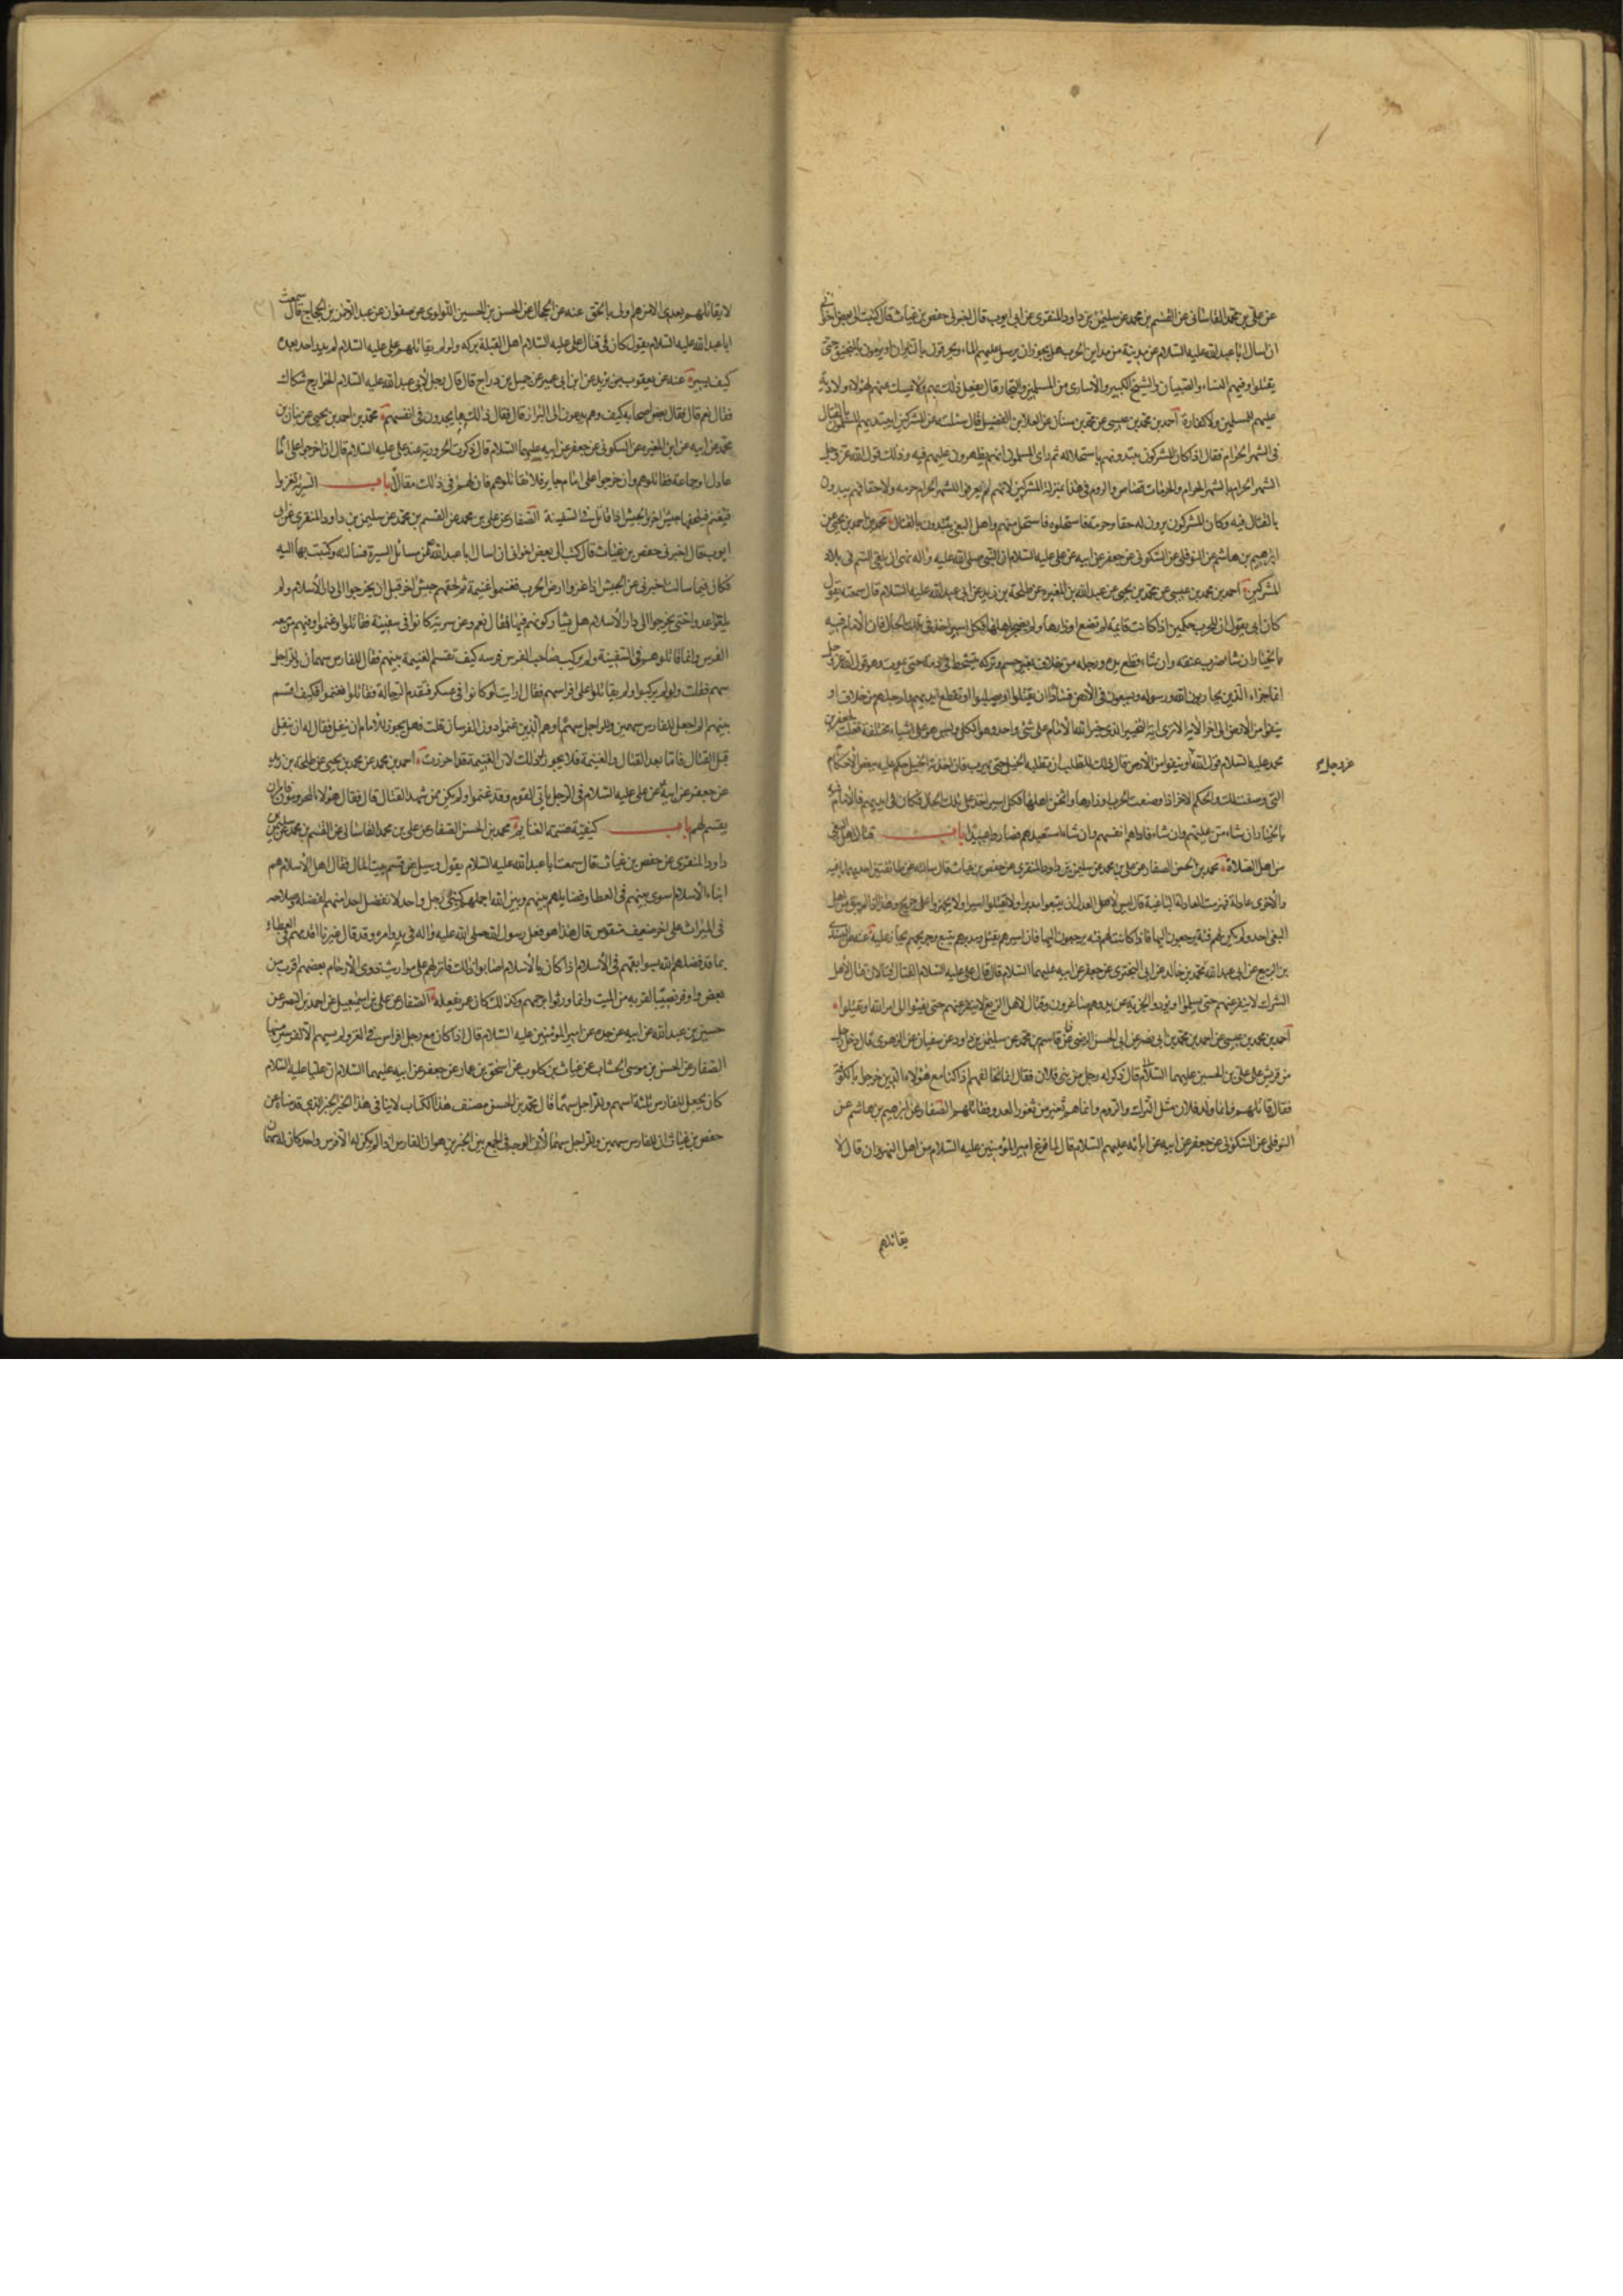 عن علي بن محمد القاساني عن القسم بن محمد عن سليمن بن داود المنقري عن ابي ايوب قال اخبرني حفص بن غياث قال كتبت الى بعض اخواني
ان اسال ابا عبد الله عليه السلام عن مدينة من مداين الحرب هل يجوز ان يرسل عليهم الماء ويحرقون بالنيران او يرمون بالمنجنيق حتى
يقتلوا وفيهم النساء والصبيان والشيخ الكبير والاسارى من المسلمين والتجار قال يفعل ذلك بهم ولا يمسك عنهم لهؤلاء ولا دية
عليهم للمسلمين ولا كفارة احمد بن محمد بن عيسى عن محمد بن سنان عن العلا بن الفضيل قال سئلت عن المشركين ايبتديهم المسلمون بالقتال
في الشهر الحرام فقال اذا كان المشركون يبتدونهم باستحلاله ثم راى المسلمون انهم يظهرون عليهم فيه وذلك قول الله عز وجل
الشهر الحرام بالشهر الحرام والحرمات قصاص والروم في هذا بمنزلة المشركين لانهم لم يعرفوا للشهر الحرام حرمة ولا حقا فهم يبدون
بالقتال فيه وكان المشركون يرون له حقا وحرمة فاستحلوه فاستحل منهم واهل البغي يبتدون بالقتال محمد بن احمد بن يحيى عن
ابرهيم بن هاشم عن النوفلي عن السكوني عن جعفر عن ابيه عن علي عليه السلام ان النبي صلى الله عليه واله نهى ان يلقى السم في بلاد
المشركين احمد بن محمد بن عيسى عن محمد بن يحيى عن عبد الله بن المغيره عن طلحة بن زيد عن ابي عبد الله عليه السلام قال سمعته يقول
كان ابي يقول ان للحرب حكمين اذا كانت قائمة لم تضع اوزارها ولم يضجر اهلها فكل اسير اخذ في تلك الحال فان الامام فيه
بالخيار ان شاء ضرب عنقه وان شاء قطع يده ورجله من خلاف بغير حسم وتركه يتشحط في دمه حتى يموت وهو قول الله عز وجل
انما جزاء الذين يحاربون الله ورسوله ويسعون في الارض فسادا ان يقتلوا او يصلبوا او تقطع ايديهم وارجلهم من خلاف او
ينفوا من الارض الى اخر الاية الا ترى انه التخيير الذي خير الله الامام على شئ واحد وهو الكل وليس هو على اشياء مختلفة فقلت لجعفر بن
محمد عليه السلام قول الله او ينفوا من الارض قال ذلك للطلب ان تطلبه الخيل حتى يهرب فان اخذته الخيل حكم عليه ببعض الاحكام
عز وجل
التي وصفت لك والحكم الاخر اذا وضعت الحرب اوزارها واثخن اهلها فكل اسير اخذ على تلك الحال فكان في ايديهم فالامام فيه
بالخيار ان شاء من عليهم وان شاء فاداهم انفسهم وان شاء استعبدهم فصاروا عبيدا باب قتال اهل البغي
من اهل الصلاة محمد بن الحسن الصفار عن علي بن محمد عن سليمن بن داود المنقري عن حفص بن غياث قال سالته عن طائفتين احديهما باغية
والاخرى عادلة فهزمت العادلة الباغية قال ليس لاهل العدل ان يتبعوا مدبرا ولا يقتلوا اسيرا ولا يجهزوا على جريح وهذا اذا لم يبق من اهل
البغي احد ولم يكن لهم فئة يرجعون اليها فاذا كانت لهم فئة يرجعون اليها فان اسيرهم يقتل ومدبرهم يتبع وجريحهم يجاز عليه عنه عن السندي
بن الربيع عن ابي عبد الله محمد بن خالد عن ابي البختري عن جعفر عن ابيه عليهما السلام قال قال علي عليه السلام القتال قتالان قتال لاهل
الشرك لا ينفر عنهم حتى يسلموا او يؤدوا الجزية عن يد وهم صاغرون وقتال لاهل الزيغ لا ينفر عنهم حتى يفيئوا الى امر الله او يقتلوا
احمد بن محمد بن عيسى عن احمد بن محمد بن ابي نصر عن ابي الحسن الرضي عن قاسم بن محمد عن سليمن بن داود عن سفيان عن الزهري قال دخل رجل
من قريش على علي بن الحسين عليهما السلام قال ذكر له رجل من بني فلان فقال انما نخالفهم اذا كنا مع هؤلاء الذين خرجوا بالكوفة
فقال قاتلهم فانما ولد فلان مثل الترك والروم وانما هم ثغر من ثغور العدو فقاتلهم الصفار عن ابرهيم بن هاشم عن
النوفلي عن السكوني عن جعفر عن ابيه عن ابائه عليهم السلام قال لما فرغ امير المؤمنين عليه السلام من اهل النهروان قال لا
يقاتلهم
لا يقاتلهم بعدي الا من هم اولى بالحق عنه عن الحجال عن الحسن بن الحسين اللؤلؤي عن صفوان عن عبد الرحمن بن الحجاج قال سمعت
ابا عبد الله عليه السلام يقول كان في قتال علي عليه السلام اهل القبلة بركة ولو لم يقاتلهم علي عليه السلام لم يدر احد بعده
كيف يسير عنه عن يعقوب بن يزيد عن ابن ابي عمير عن جميل بن دراج قال قال رجل لابي عبد الله عليه السلام الخوارج شكاك
فقال نعم قال فقال بعض اصحابه كيف وهم يدعون الى البراز قال فقال ذلك مما يجدون في انفسهم محمد بن احمد بن يحيى عن بنان بن
محمد عن ابيه عن ابن المغيره عن السكوني عن جعفر عن ابيه عليهما السلام قال ذكرت الحرورية عند علي عليه السلام قال ان خرجوا على امام
عادل او جماعة فقاتلوهم وان خرجوا على امام جاير فلا تقاتلوهم فان لهم في ذلك مقالا باب السرية تغزوا
فتغنم فيلحقها جيش اخر والجيش اذا قاتل في السفينة الصفار عن علي بن محمد عن القسم بن محمد عن سليمن بن داود المنقري عن ابي
ايوب قال اخبرني حفص بن غياث قال كتب الى بعض اخواني ان اسال ابا عبد الله عن مسائل السيرة فسالته وكتبت بها اليه
فكان فيما سالت اخبرني عن الجيش اذا غزوا ارض الحرب فغنموا غنيمة ثم لحقهم جيش اخر قبل ان يخرجوا الى دار الاسلام ولم
يلقوا عدوا حتى يخرجوا الى دار الاسلام هل يشاركونهم فيها فقال نعم وعن سرية كانوا في سفينة فقاتلوا وغنموا وفيهم من معه
الفرس وانما قاتلوهم في السفينة ولم يركب صاحب الفرس فرسه كيف تقسم الغنيمة بينهم فقال للفارس سهمان وللراجل
سهم فقلت ولو لم يركبوا ولم يقاتلوا على افراسهم فقال ارايت لو كانوا في عسكر فتقدم الرجالة فقاتلوا فغنموا كيف اقسم
بينهم الم اجعل للفارس سهمين وللراجل سهما وهم الذين غنموا دون الفرسان قلت فهل يجوز للامام ان ينفل فقال له ان ينفل
قبل القتال فاما بعد القتال والغنيمة فلا يجوز ذلك لان الغنيمة قد احرزت احمد بن محمد عن محمد بن يحيى عن طلحة بن زيد
عن جعفر عن ابيه عن علي عليه السلام في الرجل ياتي القوم وقد غنموا ولم يكن ممن شهد القتال قال فقال هؤلاء المحرومون فامر ان
يقسم لهم باب كيفية قسمة الغنايم محمد بن الحسن الصفار عن علي بن محمد القاساني عن القسم بن محمد عن سليمن بن
داود المنقري عن حفص بن غياث قال سمعت ابا عبد الله عليه السلام يقول وسيل عن قسم بيت المال فقال اهل الاسلام هم
ابناء الاسلام اسوي بينهم في العطا وفضايلهم بينهم وبين الله اجملهم كبني رجل واحد لا نفضل احدا منهم لفضله وصلاحه
في الميراث على اخر ضعيف منقوص قال هذا هو فعل رسول الله صلى الله عليه واله في بدو امره وقد قال غيرنا اقدمهم في العطاء
بما قد فضلهم الله بسوابقهم في الاسلام اذا كان بالاسلام اصابوا ذلك فانزلهم على مواريث ذوي الارحام بعضهم اقرب من
بعض واوفر نصيبا لقربه من الميت وانما ورثوا برحمهم وكذلك كان عمر يفعله الصفار عن علي بن اسمعيل عن احمد بن النضر عن
حسين بن عبد الله عن ابيه عن جده عن امير المؤمنين عليه السلام قال اذا كان مع رجل افراس في الغزو لم يسهم الا لفرسين منها
الصفار عن الحسن بن موسى الخشاب عن غياث بن كلوب عن اسحق بن عمار عن جعفر عن ابيه عليهما السلام ان عليا عليه السلام
كان يجعل للفارس ثلثة اسهم وللراجل سهما قال محمد بن الحسن مصنف هذا الكتاب لا ينافي هذا الخبر الخبر الذي قدمناه عن
حفص بن غياث ان للفارس سهمين وللراجل سهما لان الوجه في الجمع بين الخبرين هو ان الفارس اذا لم يكن له الا فرس واحد كان له سهمان